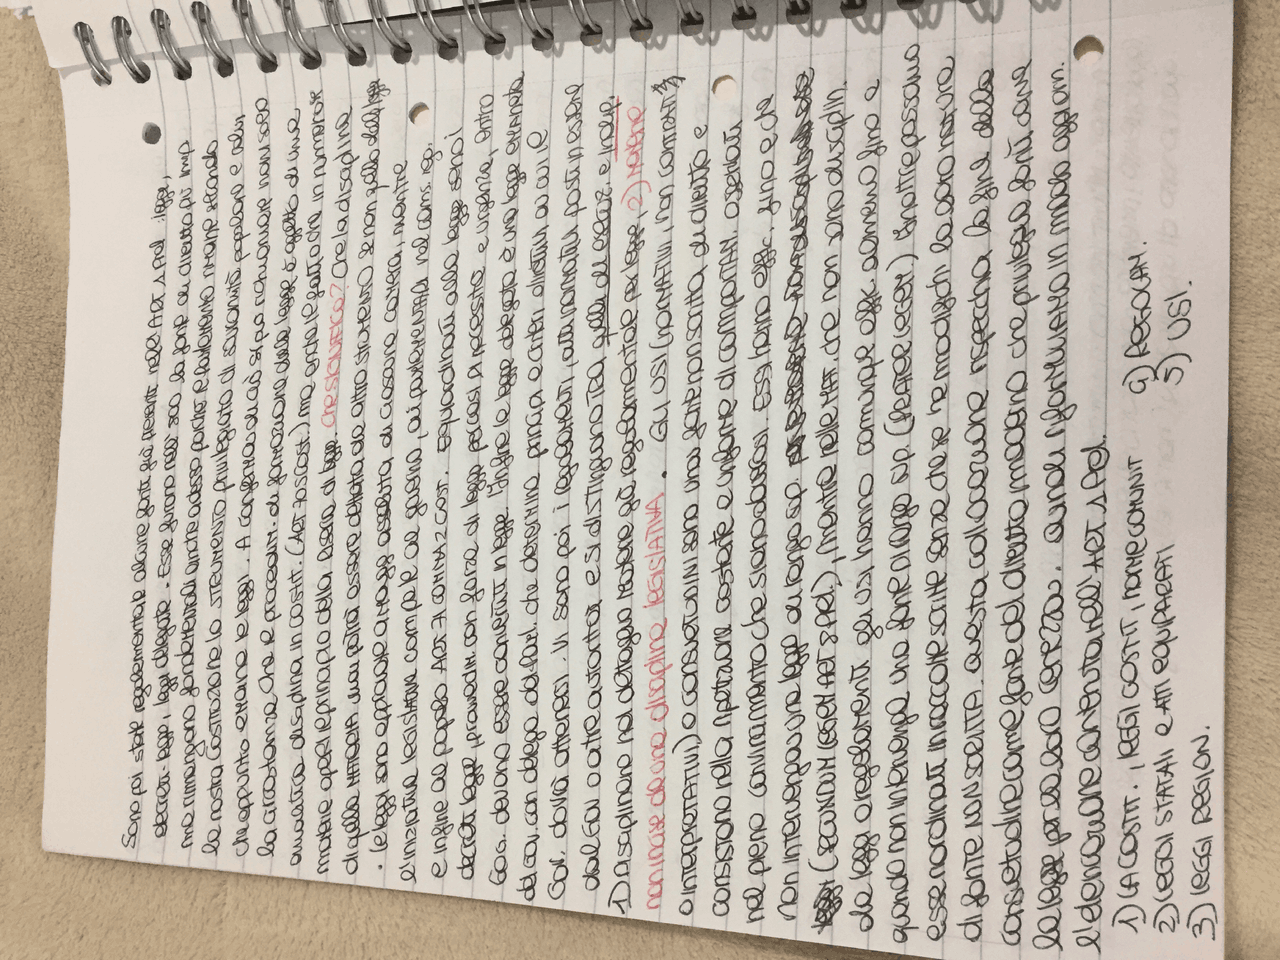 Sono poi state regolamentate alcune fonti già presenti nelle ART 1 prel. leggi,
decreti legge, leggi delegate. Esse furono nell' 800 la fonte di diritto più imp
ma rimangono fondamentali anche adesso poiché il parlamento rimane secondo
la nostra Costituzione lo STRUMENTO privilegiato di sovranità popolare e colui
che appunto emana le leggi. A conferma di ciò si può richiamare non solo
la circostanza che il procedim. di formazione della legge è oggetto di una
autentica disciplina in costit. (ART 70 SS COST.) ma anche il fatto che in numerose
materie opera il principio della riserva di legge. Che significa? Che la disciplina
di quella MATERIA non potrà essere dettata da altro strumento se non quello della legge
. Le leggi sono approvate a maggioranza assoluta di ciascuna camera, mentre
l'iniziativa legislativa compete al governo, ai parlamentari nel cons. reg.
e infine al popolo ART 71 COMMA 2 COST. Equiordinati alla legge sono i
decreti legge, provvedim con forza di legge per casi di necessità e urgenza, entro
60 g. devono essere convertiti in legge. Infine la legge delegata è una legge emanata
dal Gov. con delega del Parl. che determina principi e criteri direttivi a cui il
Gov. dovrà attenersi. Vi sono poi i regolamenti, atti normativi posti in essere
dal Gov o altre autorità e si distinguono tra quelli di esecuz. e indip.
1) Disciplinano nel dettaglio materie già regolamentate per legge, 2) MATERIE
non incise da una disciplina legislativa. GLI USI (NORMATIVI, non CONTRATT.
o interpretativi) o consuetudini sono una fonte non scritta di diritto e
consistono nella ripetizione costante e uniforme di comportam. assistiti
nel pieno convincimento che siano doverosi. Essi hanno effic. fino a che
non intervenga una legge di rango sup
(SECUNDUM LEGEM ART 8 PREL), mentre nelle MAT. che non sono disciplin.
da leggi o regolamenti gli usi hanno comunque effic almeno fino a
quando non intervenga una fonte di rango sup. (PRAETER LEGEM) Inoltre possono
essere ordinati in raccolte scritte senza che si modifichi la loro natura
di fonte NON SCRITTA. Questa collocazione rispecchia la fine della
consuetudine come fonte del diritto moderno che privilegia fonti come
la legge per la loro certezza.
l'elencazione contenuta nell' ART 1 Prel.
1) LA COSTIT., LEGGI COSTIT, NORME COMUNIT
2) LEGGI STATALI e ATTI EQUIPARATI
3) LEGGI REGION.
4) REGOLAM.
5) USI.